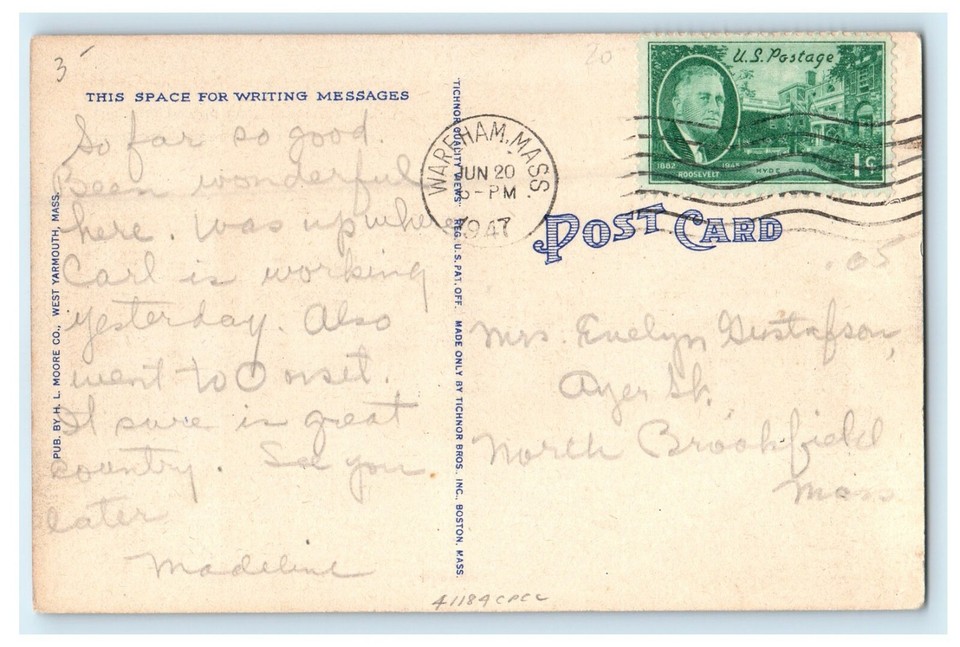 3
20
U.S. Postage
1882 1945
ROOSEVELT
HYDE PARK
1¢
THIS SPACE FOR WRITING MESSAGES
WAREHAM, MASS.
JUN 20
-PM
1947
POST CARD
.05
So far so good.
Been wonderful
here. Was up where
Carl is working
yesterday. Also
went to Onset.
It sure is great
country. See you
later
Madeline
Mrs. Evelyn Gustafson,
Ayer St.
North Brookfield
Mass
PUB. BY H. L. MOORE CO., WEST YARMOUTH, MASS.
TICHNOR QUALITY VIEWS. REG. U.S. PAT. OFF. MADE ONLY BY TICHNOR BROS., INC., BOSTON, MASS.
41184CPCC